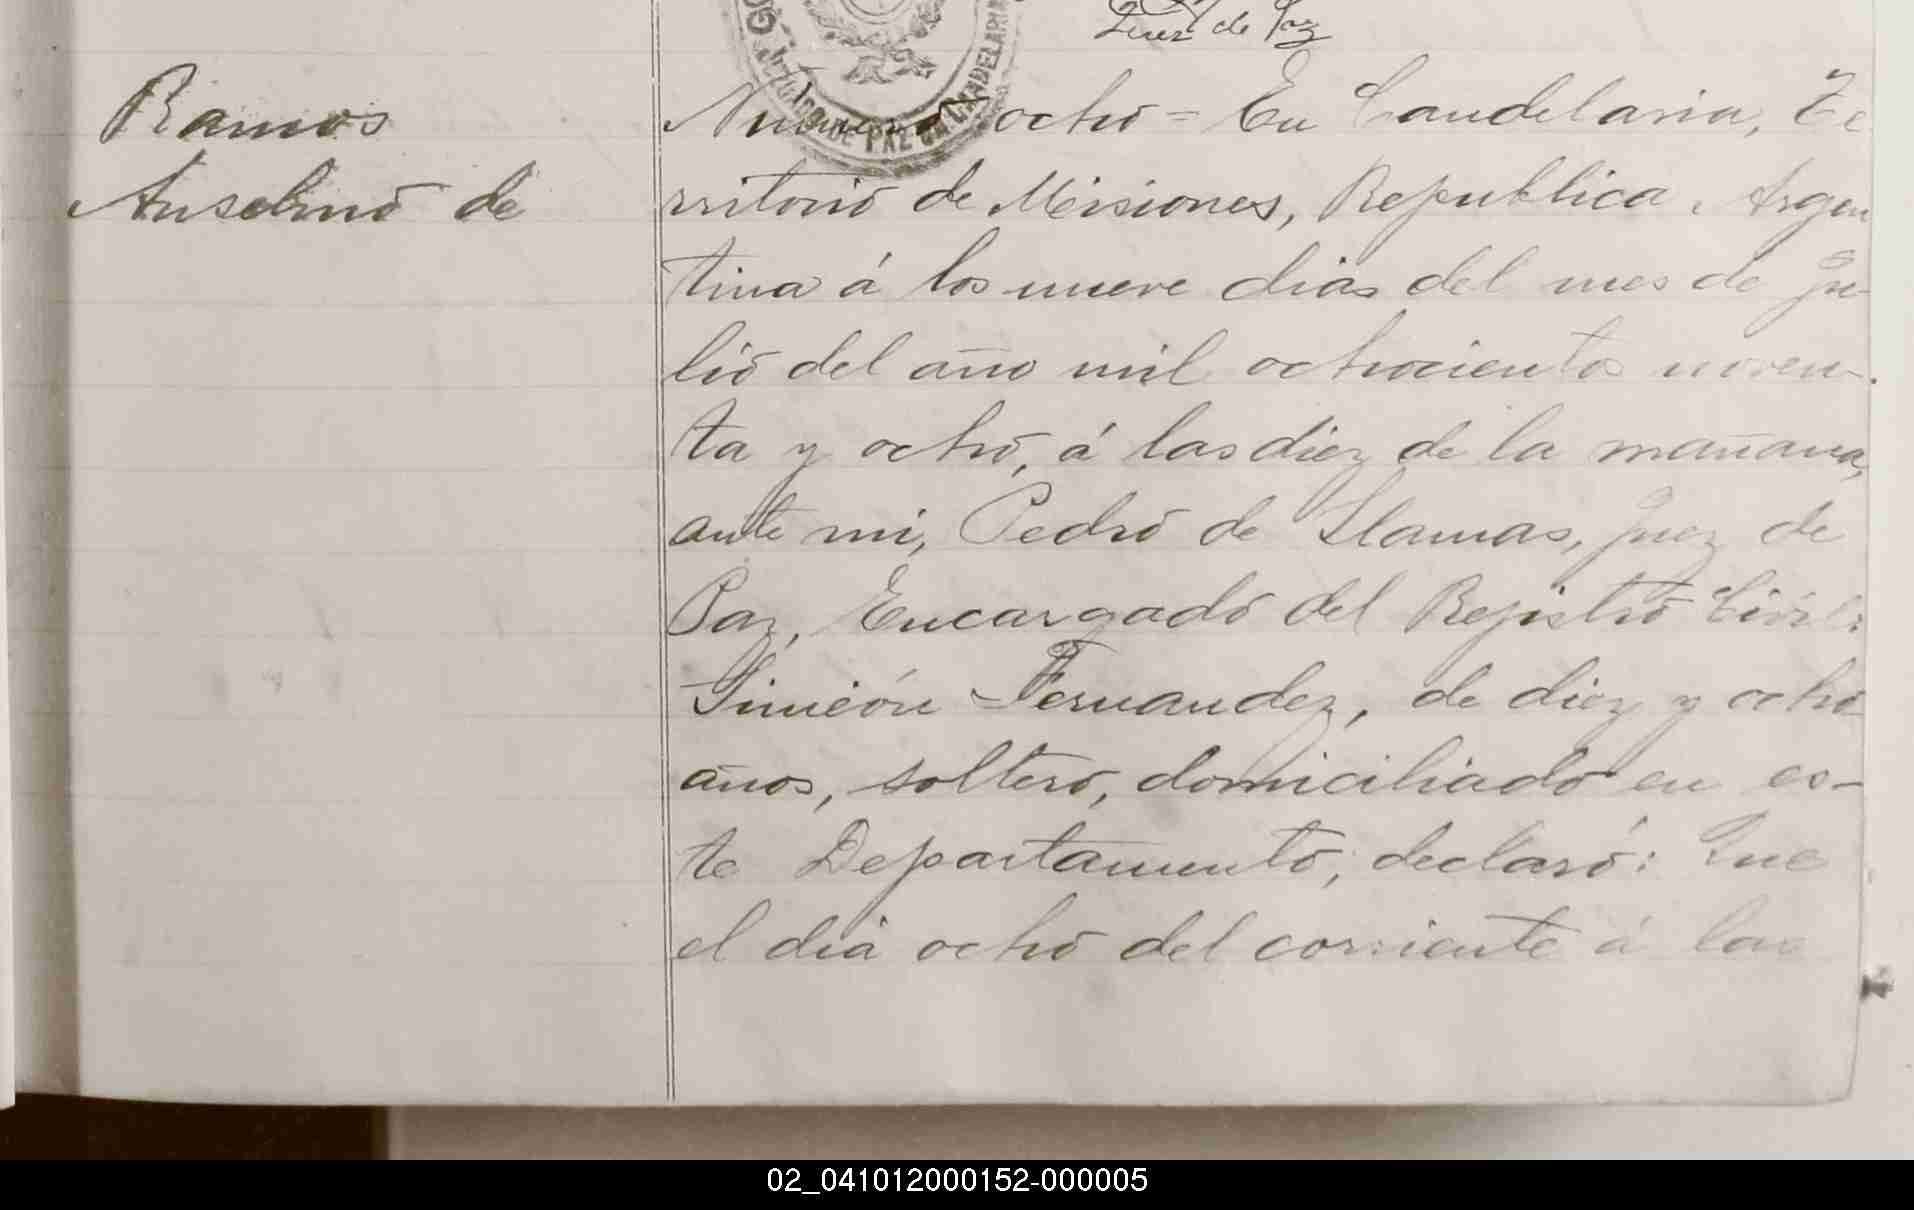 Juez de Paz
JUZGADO DE PAZ DE CANDELARIA
Ramos
Anselmo de
Numero ocho = En Candelaria, Te
rritorio de Misiones, Republica Argen
tina á los nueve dias del mes de Ju-
lio del año mil ochocientos noven-
ta y ocho, á las diez de la mañana,
ante mi, Pedro de Llamas, Juez de
Paz, Encargado del Rejistro Civil:
Simeón Fernandez, de diez y ocho
años, soltero, domiciliado en es-
te Departamento, declaró: Que
el dia ocho del corriente á las
02_041012000152-000005